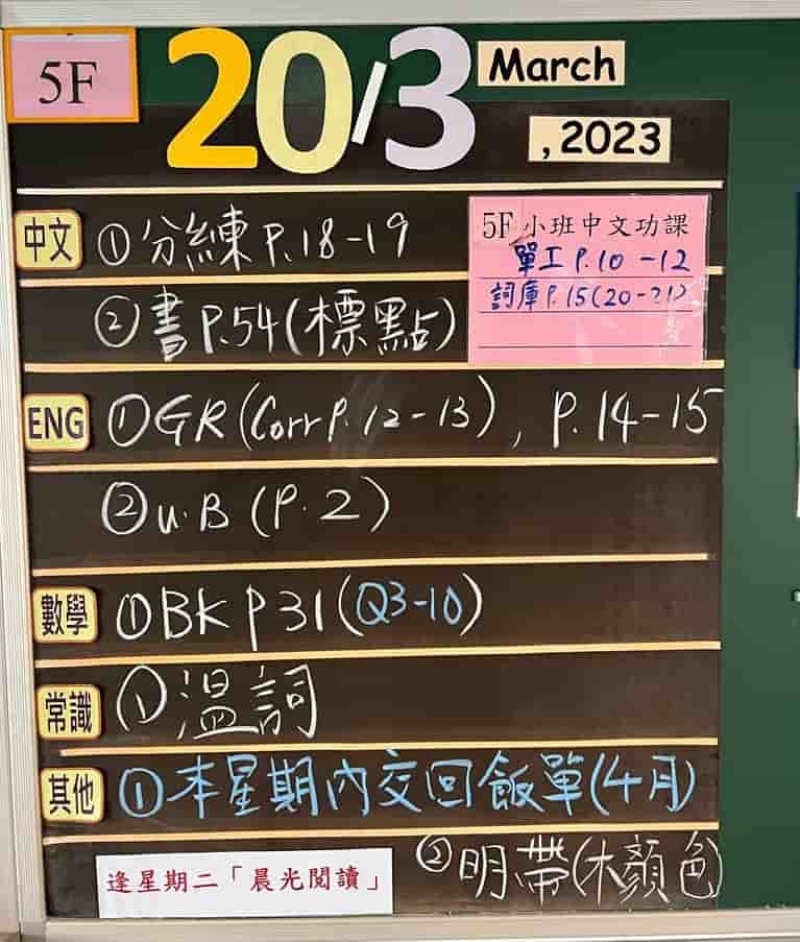 5F
20/3 March
, 2023
中文 ①分練 P.18-19
②書 P.54(標點)
5F 小班中文功課
單工 P.10-12
詞庫 P.15(20-21)
ENG ①GR(Corr P.12-13), P.14-15
②U.B (P.2)
數學 ①BK P31(Q3-10)
常識 ①溫詞
其他 ①本星期內交回飯單(4月)
②明帶(木顏色)
逢星期二「晨光閱讀」